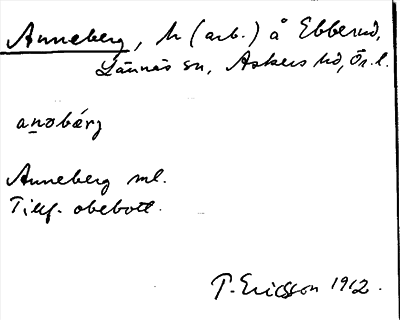 Anneberg, h (arb.) å Ebberud,
Lännäs sn, Askers hd, Ör. l.
anəbárj
Anneberg ml.
Tillf. obebott.
T. Ericsson 1912.